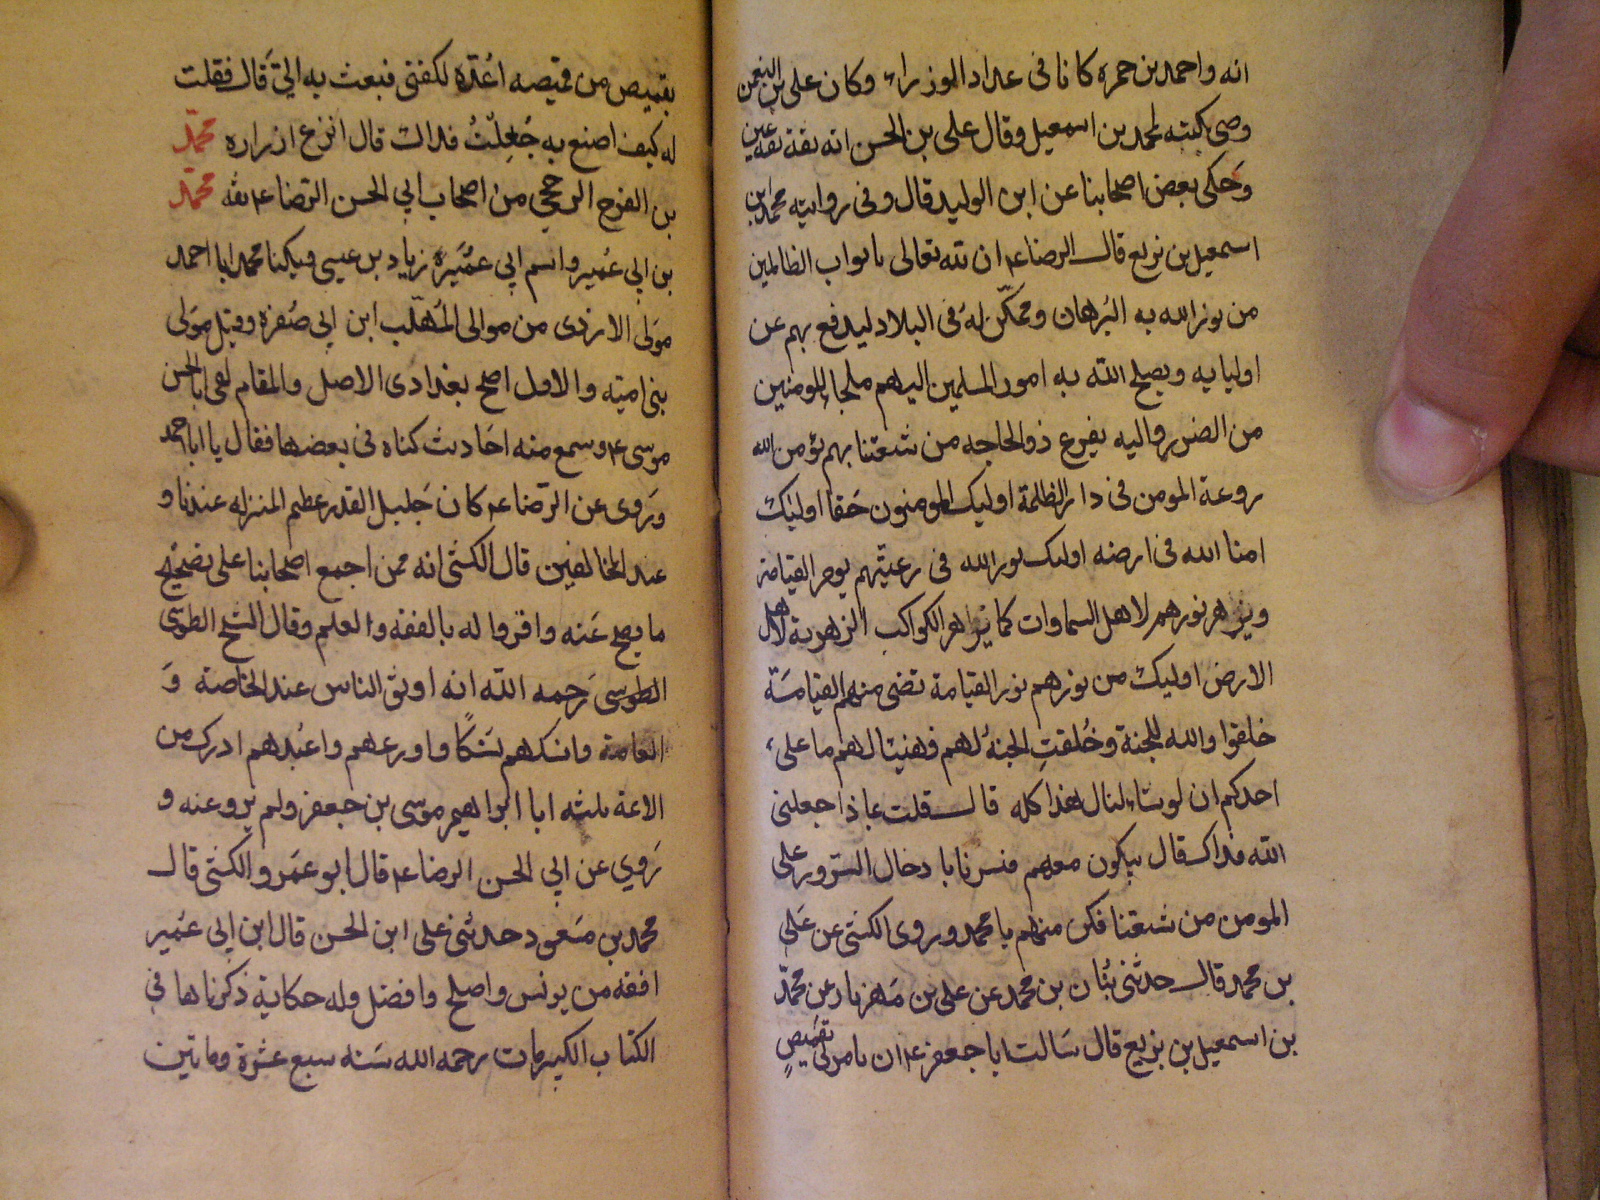 انه واحمد بن حمزه كانا فى عداد الوزراء وكان على بن النعمن
وصى بكتبه لمحمد بن اسمعيل وقال على بن الحسن انه ثقة ثقة عين
وحكى بعض اصحابنا عن ابن الوليد قال وفى رواية محمد بن
اسمعيل بن بزيع قال الرضا ع ان لله تعالى بابواب الظالمين
من نور الله به البرهان ومكّن له فى البلاد ليدفع بهم عن
اوليايه ويصلح الله به امور المسلمين اليهم ملجاء المومنين
من الضر واليه يفزع ذو الحاجه من شيعتنا بهم يؤمن الله
روعة المومن فى دار الظلمة اوليك المومنون حَقا اوليك
امنا الله فى ارضه اوليك نور الله فى رعيتهم يوم القيامة
ويزهر نورهم لاهل السماوات كما تزاهر الكواكب الزهرية لاهل
الارض اوليك من نورهم نور القيامة تضى منهم القيامَة
خلقوا والله للجنة وخُلقتِ الجنةُ لهم فهنيئا لهم ما على
احدكم ان لو شاء لنال هذا كله قال قلت بماذا جعلنى
الله فداك قال يكون معهم فسرنا بادخال السرور على
المومن من شيعتنا فكن منهم يا محمد وروى الكشى عن عَلى
بن محمد قال حدثنى بُنان بن محمد عن على بن مَهزيار عن محمّد
بن اسمعيل بن بزيع قال سَالت ابا جعفر ع ان يامر لى بقميصٍ
بقميص من قميصه اعُدّه لكفنى فبعث به الىّ قَال فقلت
له كيف اصنع به جُعِلْتُ فداك قال انزع ازراره محمّد
بن الفرج الرخجى من اصحاب ابي الحسن الرّضا ع ثقه محمّد
بن ابي عُمير واسم ابي عُمَيرَة زياد بن عيسى ويكنا محمد ابا احمد
مَولى الازدى من موالى المُهَلّب ابن ابي صُفرة وقيل موَلى
بنى اميّه والاول اصح بغدادى الاصل والمقام لقى ابا الحسن
موسى ع وسمع منه احَاديث كناه فى بعضها فقال يا ابا احمد
وَروى عن الرّضا ع كان جَليل القدر عظيم المنزله عندنا و
عند المخالفين قال الكشى انه ممن اجمع اصحابنا على تصحيح
ما يصح عَنه واقروا له بالفقه والعلم وقال الشيخ الطوسى
الطوسى رَحمه الله انه اوثق الناس عند الخاصّة وَ
العامة وانسكهم نسُكًا واورعهم واعبُدهم ادرك من
الائمة ثلثه ابا ابراهيم موسى بن جعفر ولم يرو عنه و
رَوي عن ابي الحسن الرضا ع قال ابو عمَرو الكشى قال
محمد بن مَسعود حدثنى على ابن الحسن قال ابن ابي عُمير
افقه من يونس واصلح وافضل وله حكاية ذكرناها فى
الكتاب الكبير مات رحمه الله سَنة سبع عشرة وماتين